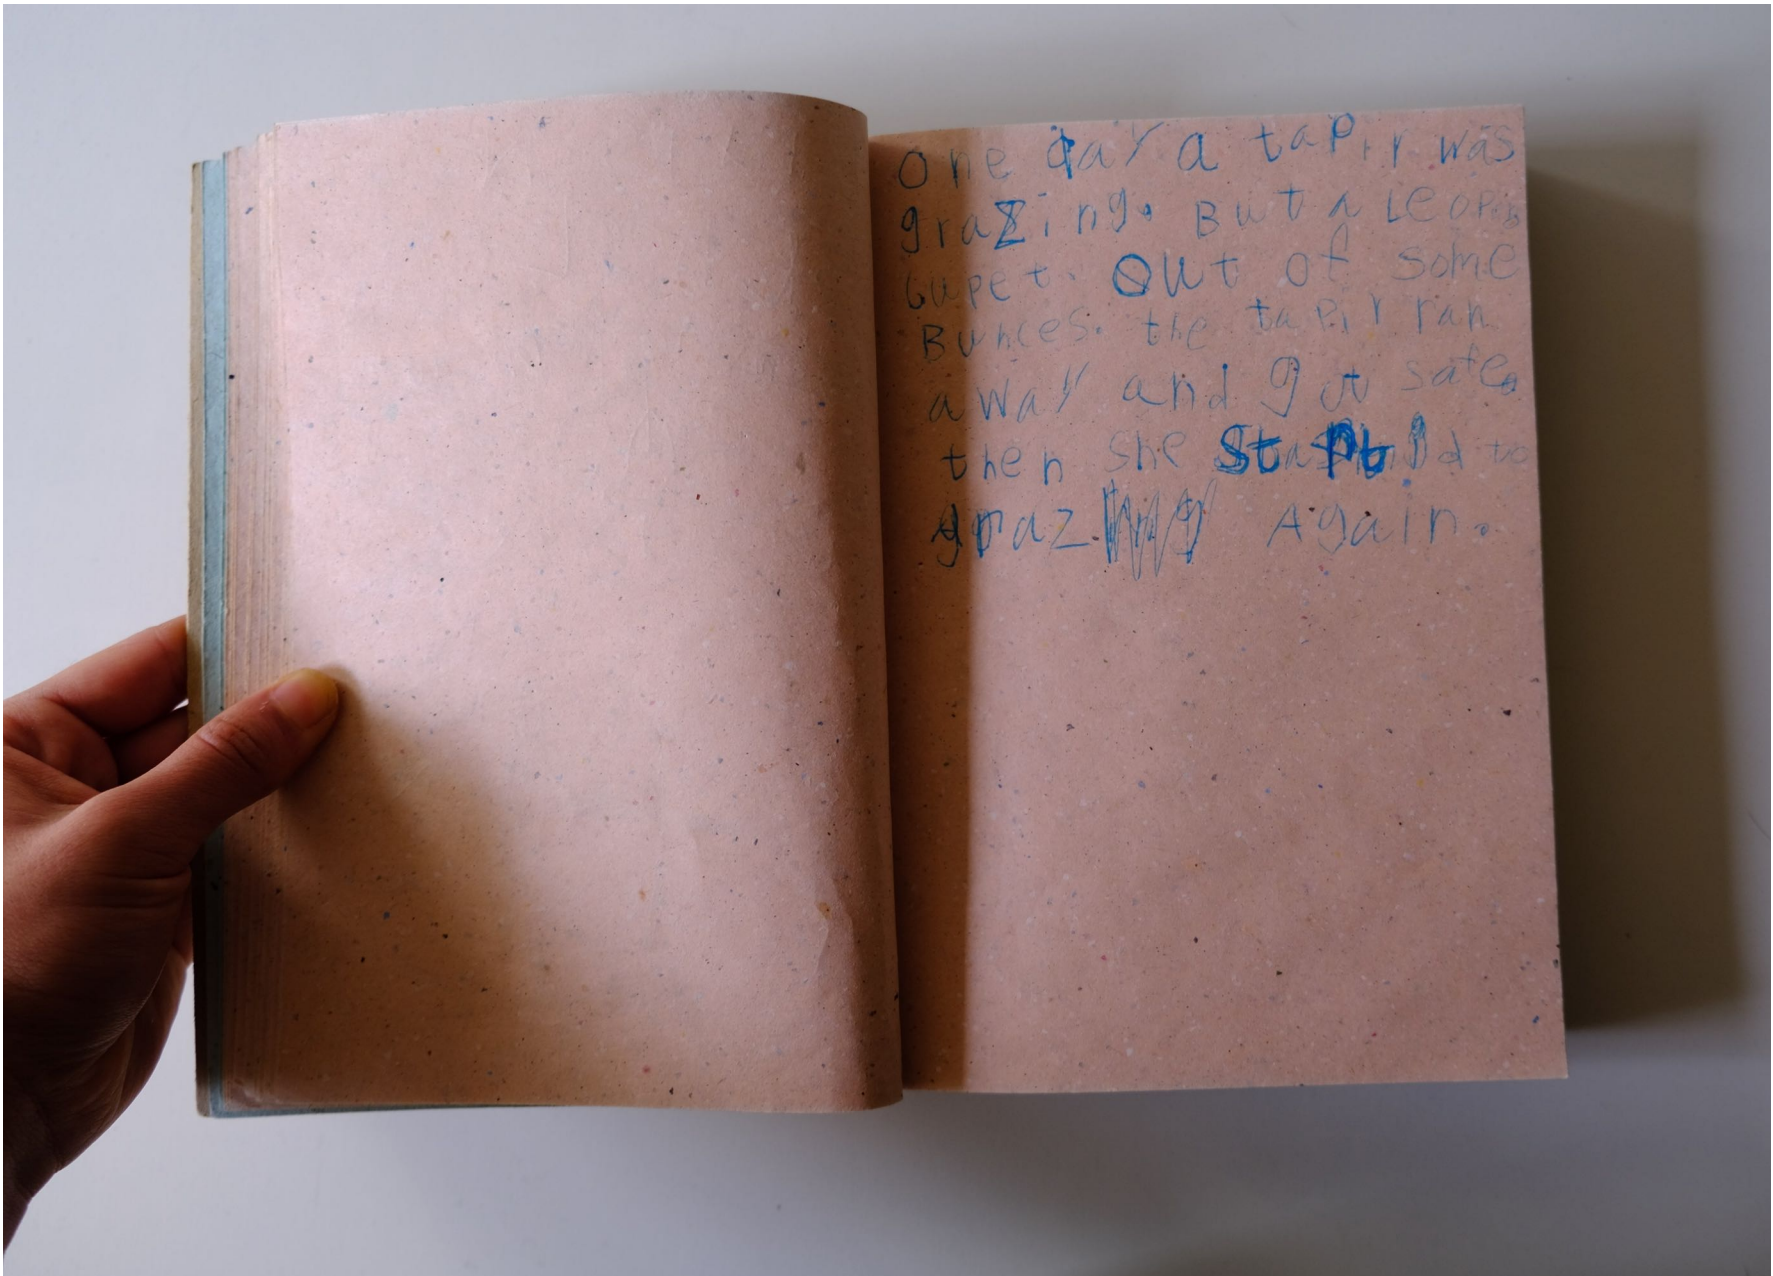 One day a tapir was
grazing. But a Leopin
Gupet. Out of some
Bunces. the tapir ran
away and got safe.
then she to
graz Again.